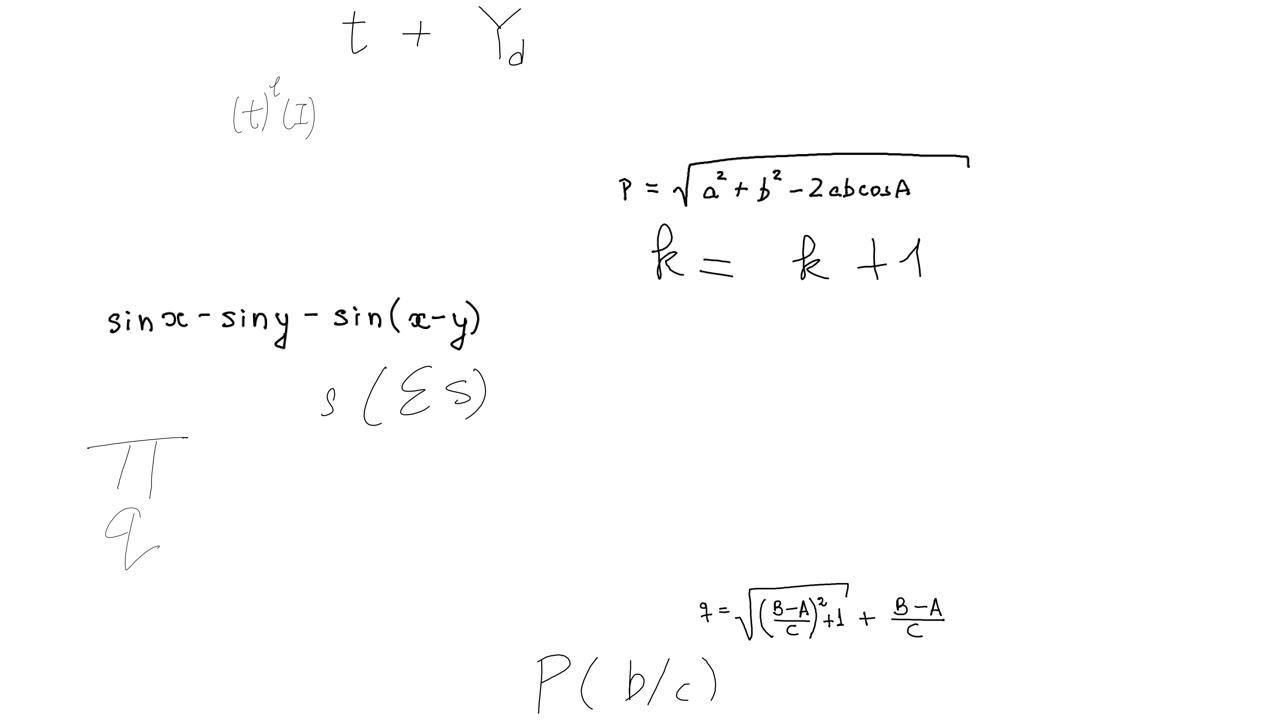 t + Y_d
(t)^t (I)
P = √(a² + b² - 2abcosA)
k = k + 1
sin x - sin y - sin(x - y)
s(Σs)
π
q
q = √(((B-A)/C)² + 1) + (B-A)/C
P(b/c)